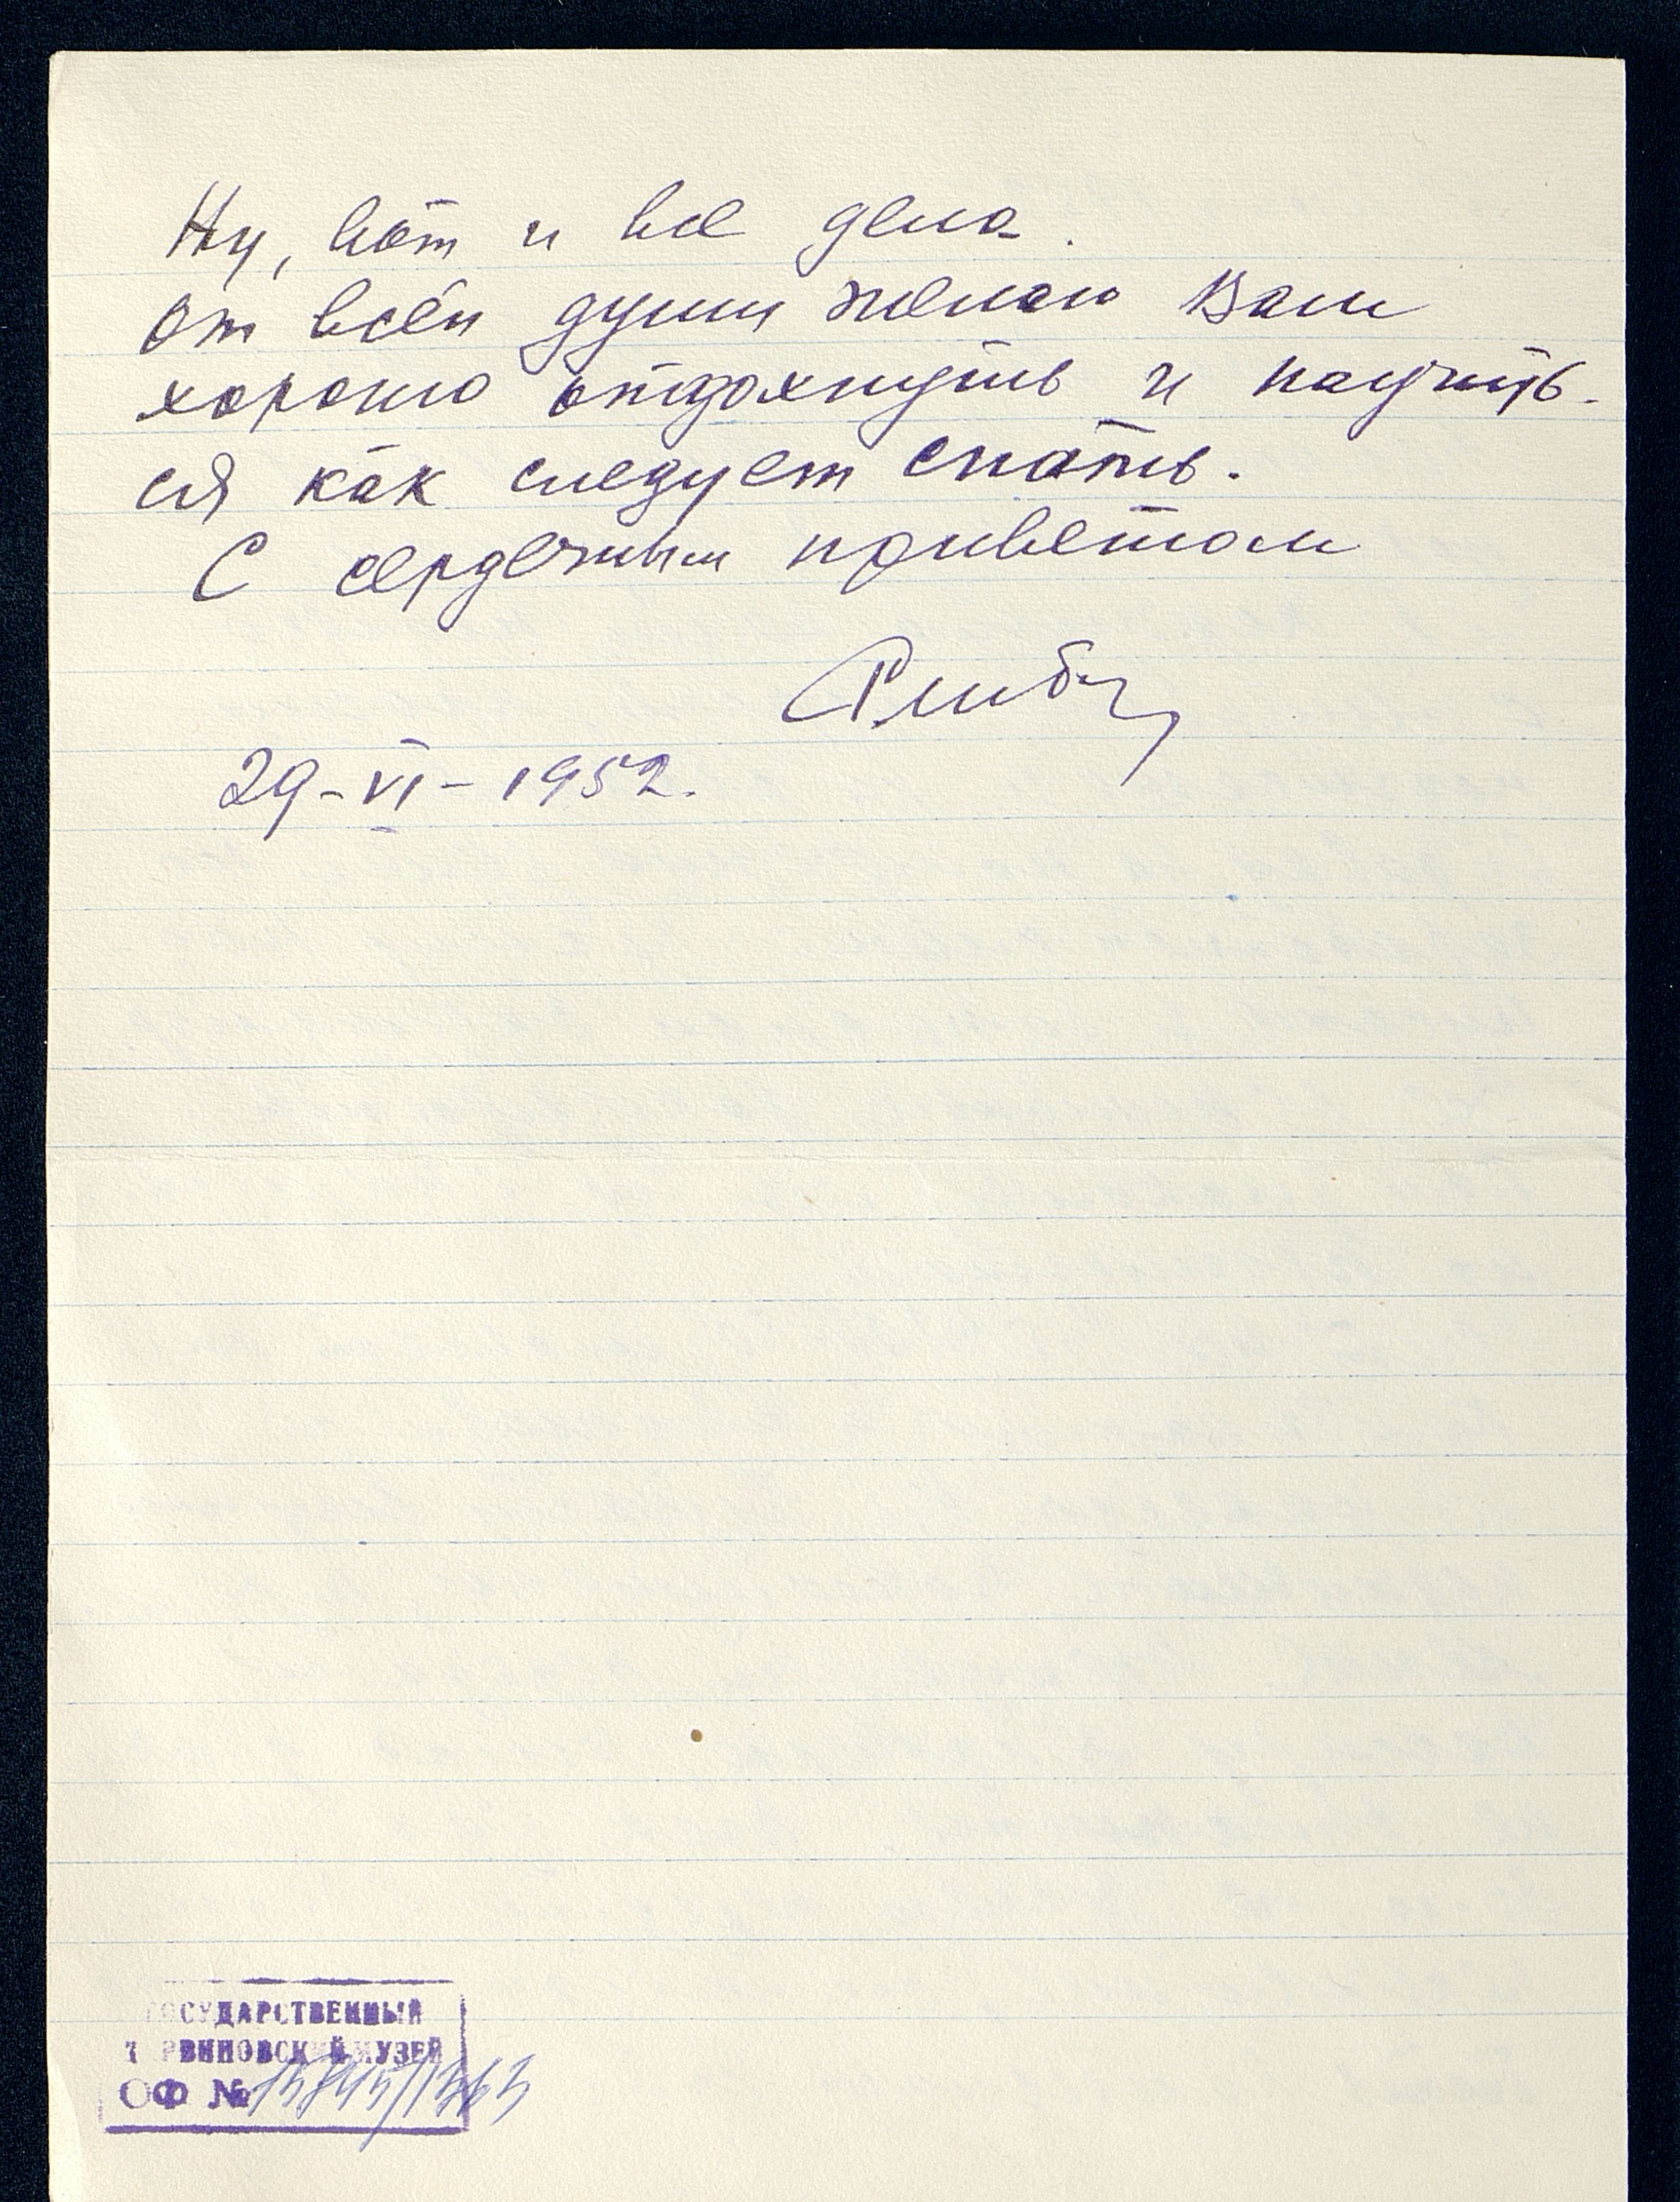 Ну, вот и все дела.
От всей души желаю Вам
хорошо отдохнуть и научить-
ся как следует спать.
С сердечным приветом
29-VI-1952.
ГОСУДАРСТВЕННЫЙ
ДАРВИНОВСКИЙ МУЗЕЙ
ОФ №